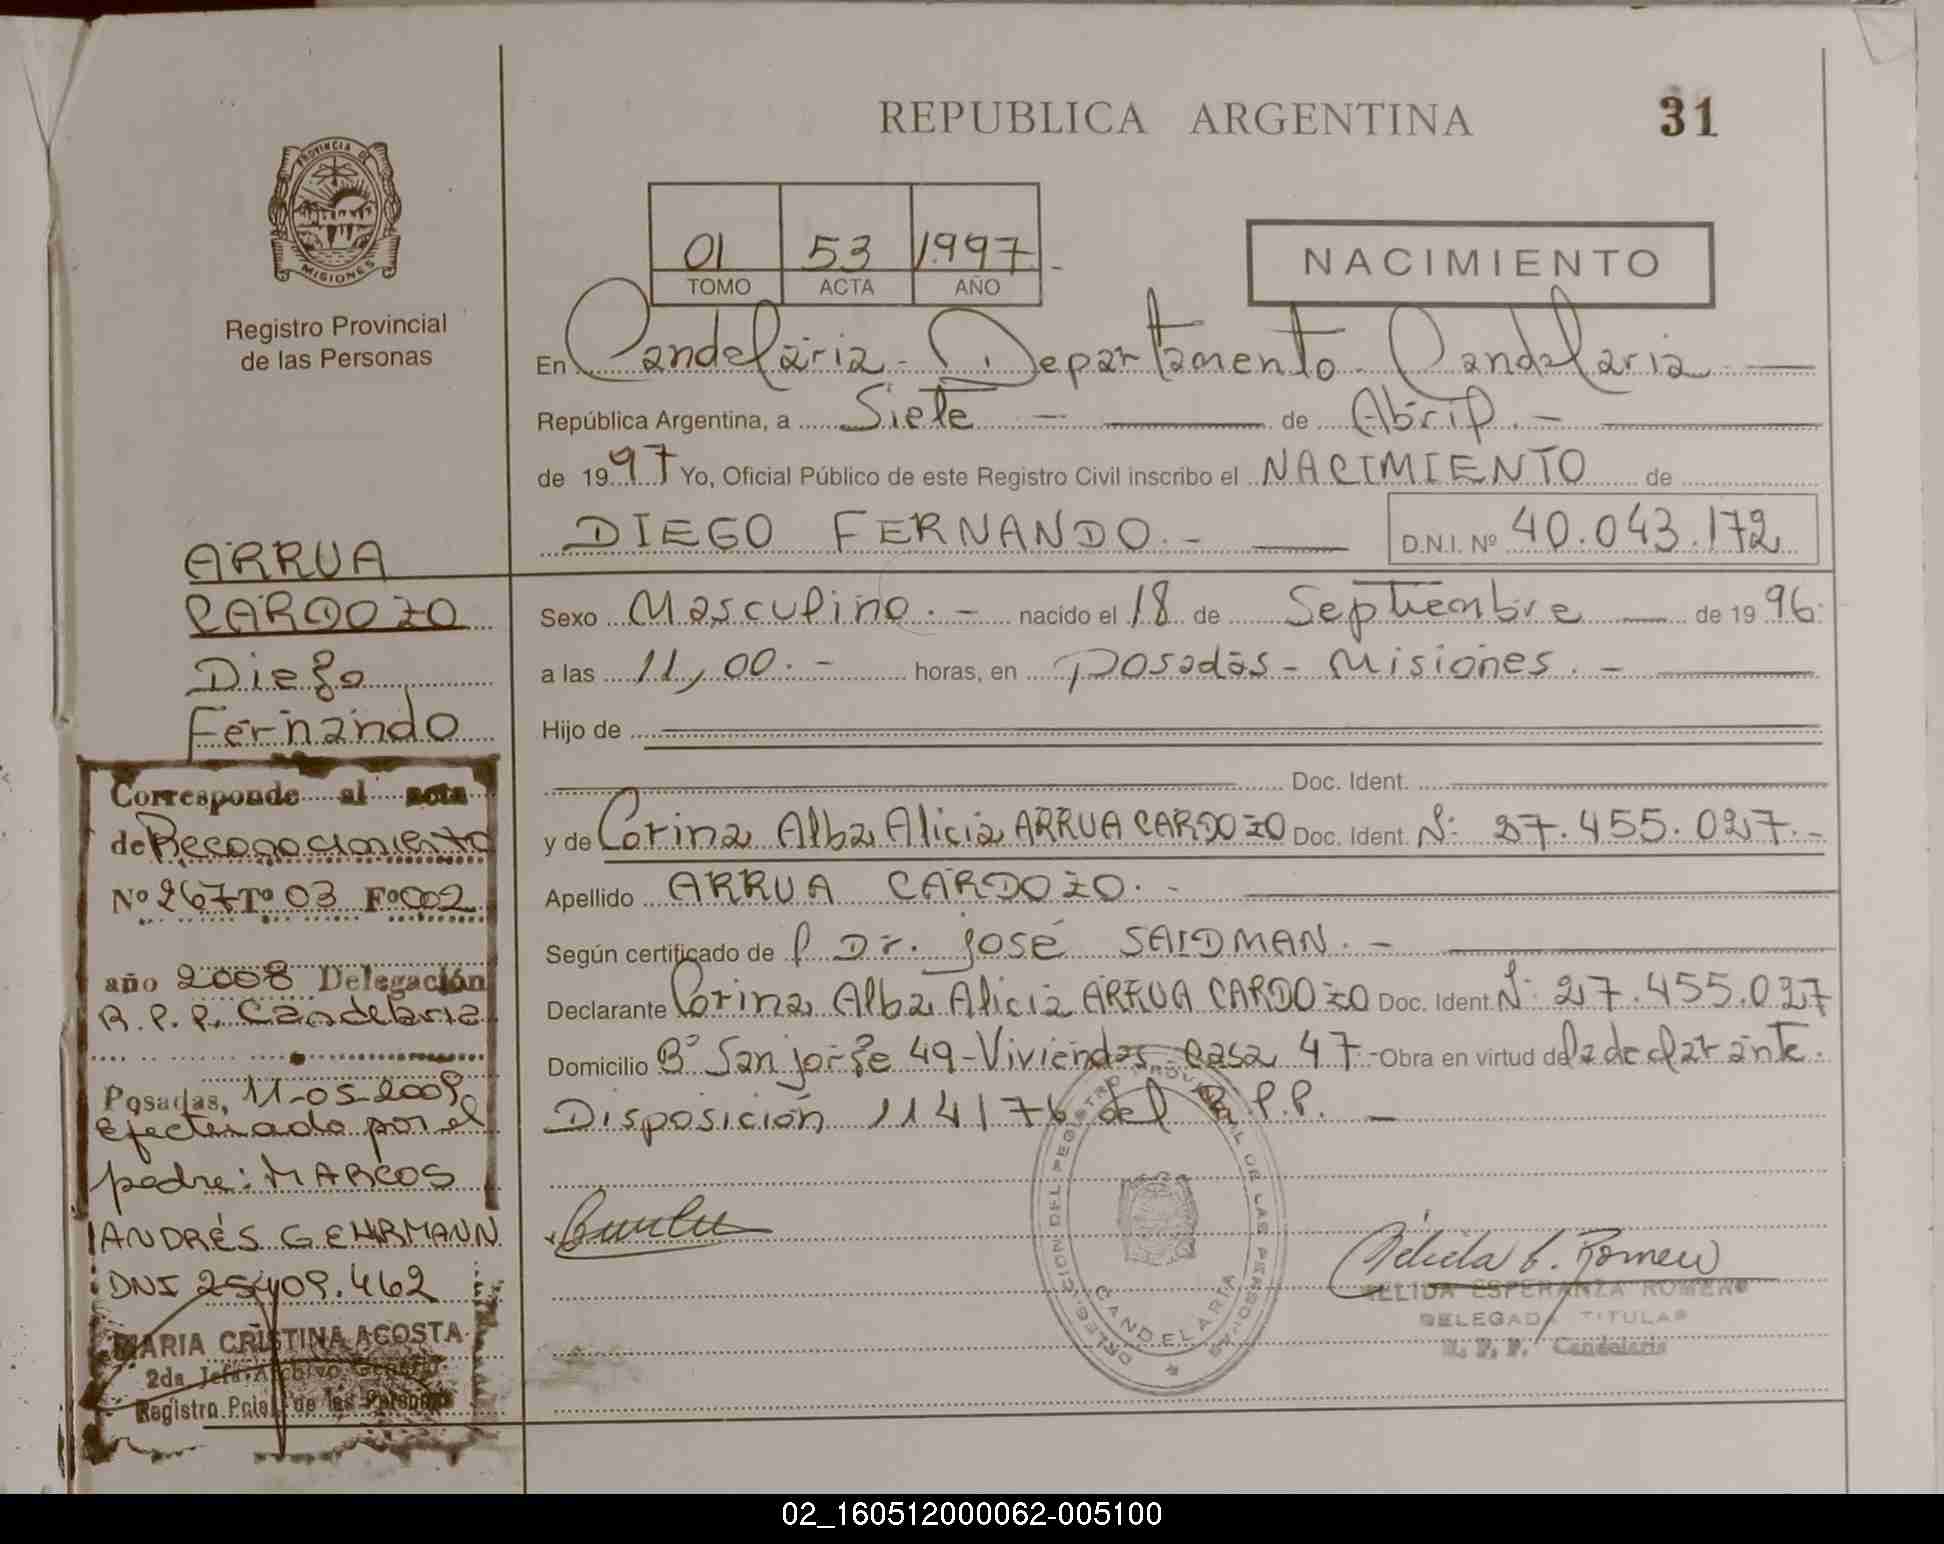 REPUBLICA ARGENTINA
31
PROVINCIA DE
MISIONES
Registro Provincial
de las Personas
01 53 1997
TOMO ACTA AÑO
NACIMIENTO
En Candelaria - Departamento Candelaria
República Argentina, a Siete de Abril
de 1997 Yo, Oficial Público de este Registro Civil inscribo el NACIMIENTO de
DIEGO FERNANDO. - D.N.I. Nº 40.043.172
Sexo Masculino. - nacido el 18 de Septiembre de 1996.
a las 11,00. - horas, en Posadas - Misiones. -
Hijo de
Doc. Ident.
y de Corina Alba Alicia ARRUA CARDOZO Doc. Ident. Nº: 27.455.027. -
Apellido ARRUA CARDOZO. -
Según certificado de Dr. José SAIDMAN. -
Declarante Corina Alba Alicia ARRUA CARDOZO Doc. Ident. Nº: 27.455.027
Domicilio Bº San jorge 49-Viviendas casa 47.- Obra en virtud de la declarante.
Disposición 114/76 del R.P.P. -
DELEGACION DEL REGISTRO PROVINCIAL DE LAS PERSONAS
CANDELARIA
NELIDA ESPERANZA ROMERO
DELEGADA TITULAR
R. P. P. Candelaria
ARRUA
CARDOZO
Diego
Fernando
Corresponde al acta
de Reconocimiento
Nº 267 Tº 03 Fº 002
año 2008 Delegación
R.P.P. Candelaria
Posadas, 11-05-2009
efectuado por el
padre: MARCOS
ANDRÉS GEHRMANN
DNI 25409.462
MARIA CRISTINA ACOSTA
2da Jefa Archivo General
Registro Pcial. de las Personas
02_160512000062-005100